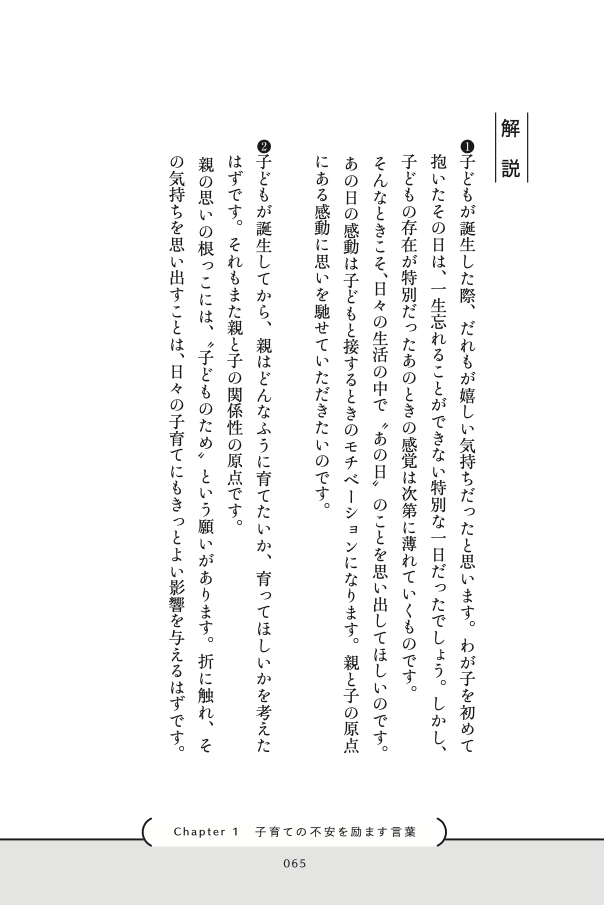 解説
❶子どもが誕生した際、だれもが嬉しい気持ちだったと思います。わが子を初めて
抱いたその日は、一生忘れることができない特別な一日だったでしょう。しかし、
子どもの存在が特別だったあのときの感覚は次第に薄れていくものです。
そんなときこそ、日々の生活の中で〝あの日〟のことを思い出してほしいのです。
あの日の感動は子どもと接するときのモチベーションになります。親と子の原点
にある感動に思いを馳せていただきたいのです。
❷子どもが誕生してから、親はどんなふうに育てたいか、育ってほしいかを考えた
はずです。それもまた親と子の関係性の原点です。
親の思いの根っこには、〝子どものため〟という願いがあります。折に触れ、そ
の気持ちを思い出すことは、日々の子育てにもきっとよい影響を与えるはずです。
Chapter 1　子育ての不安を励ます言葉
065